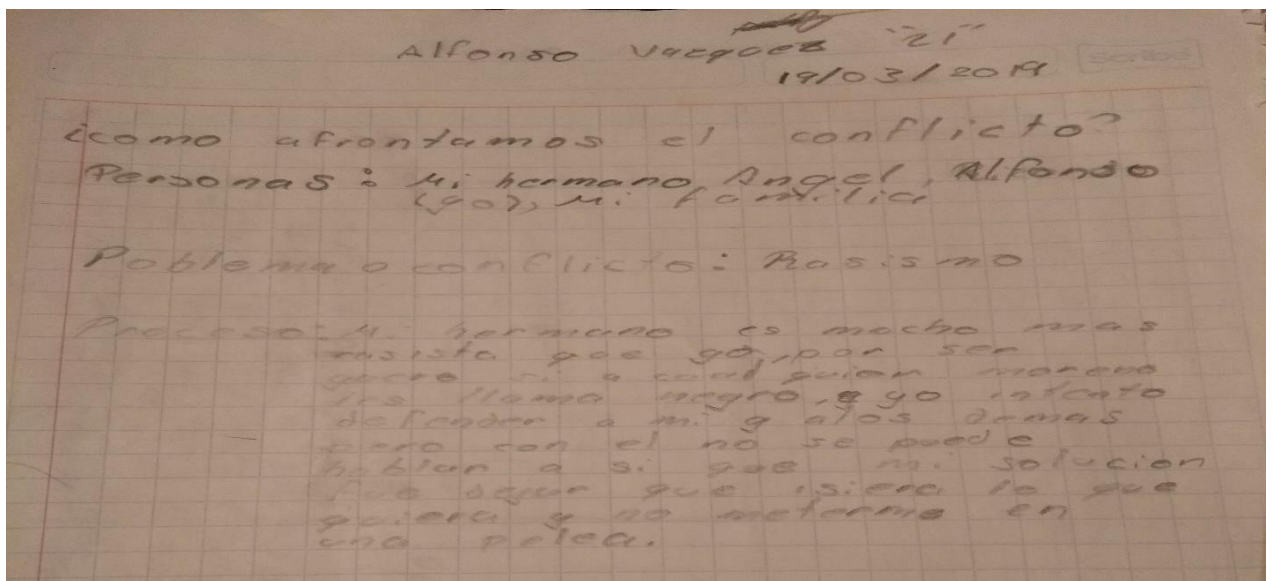 Alfonso Vazquez "21"
19/03/2019
¿como afrontamos el conflicto?
Personas: Mi hermano Angel, Alfonso
(yo), Mi familia
Poblema o conflicto: Rasismo
Proceso: Mi hermano es mucho mas
rasista que yo, por ser
guero si a cualquien moreno
les llama negro, yo intento
defender a mi y alos demas
pero con el no se puede
hablar a si que mi solucion
fue dejar que isiera lo que
quiera y no meterme en
una pelea.